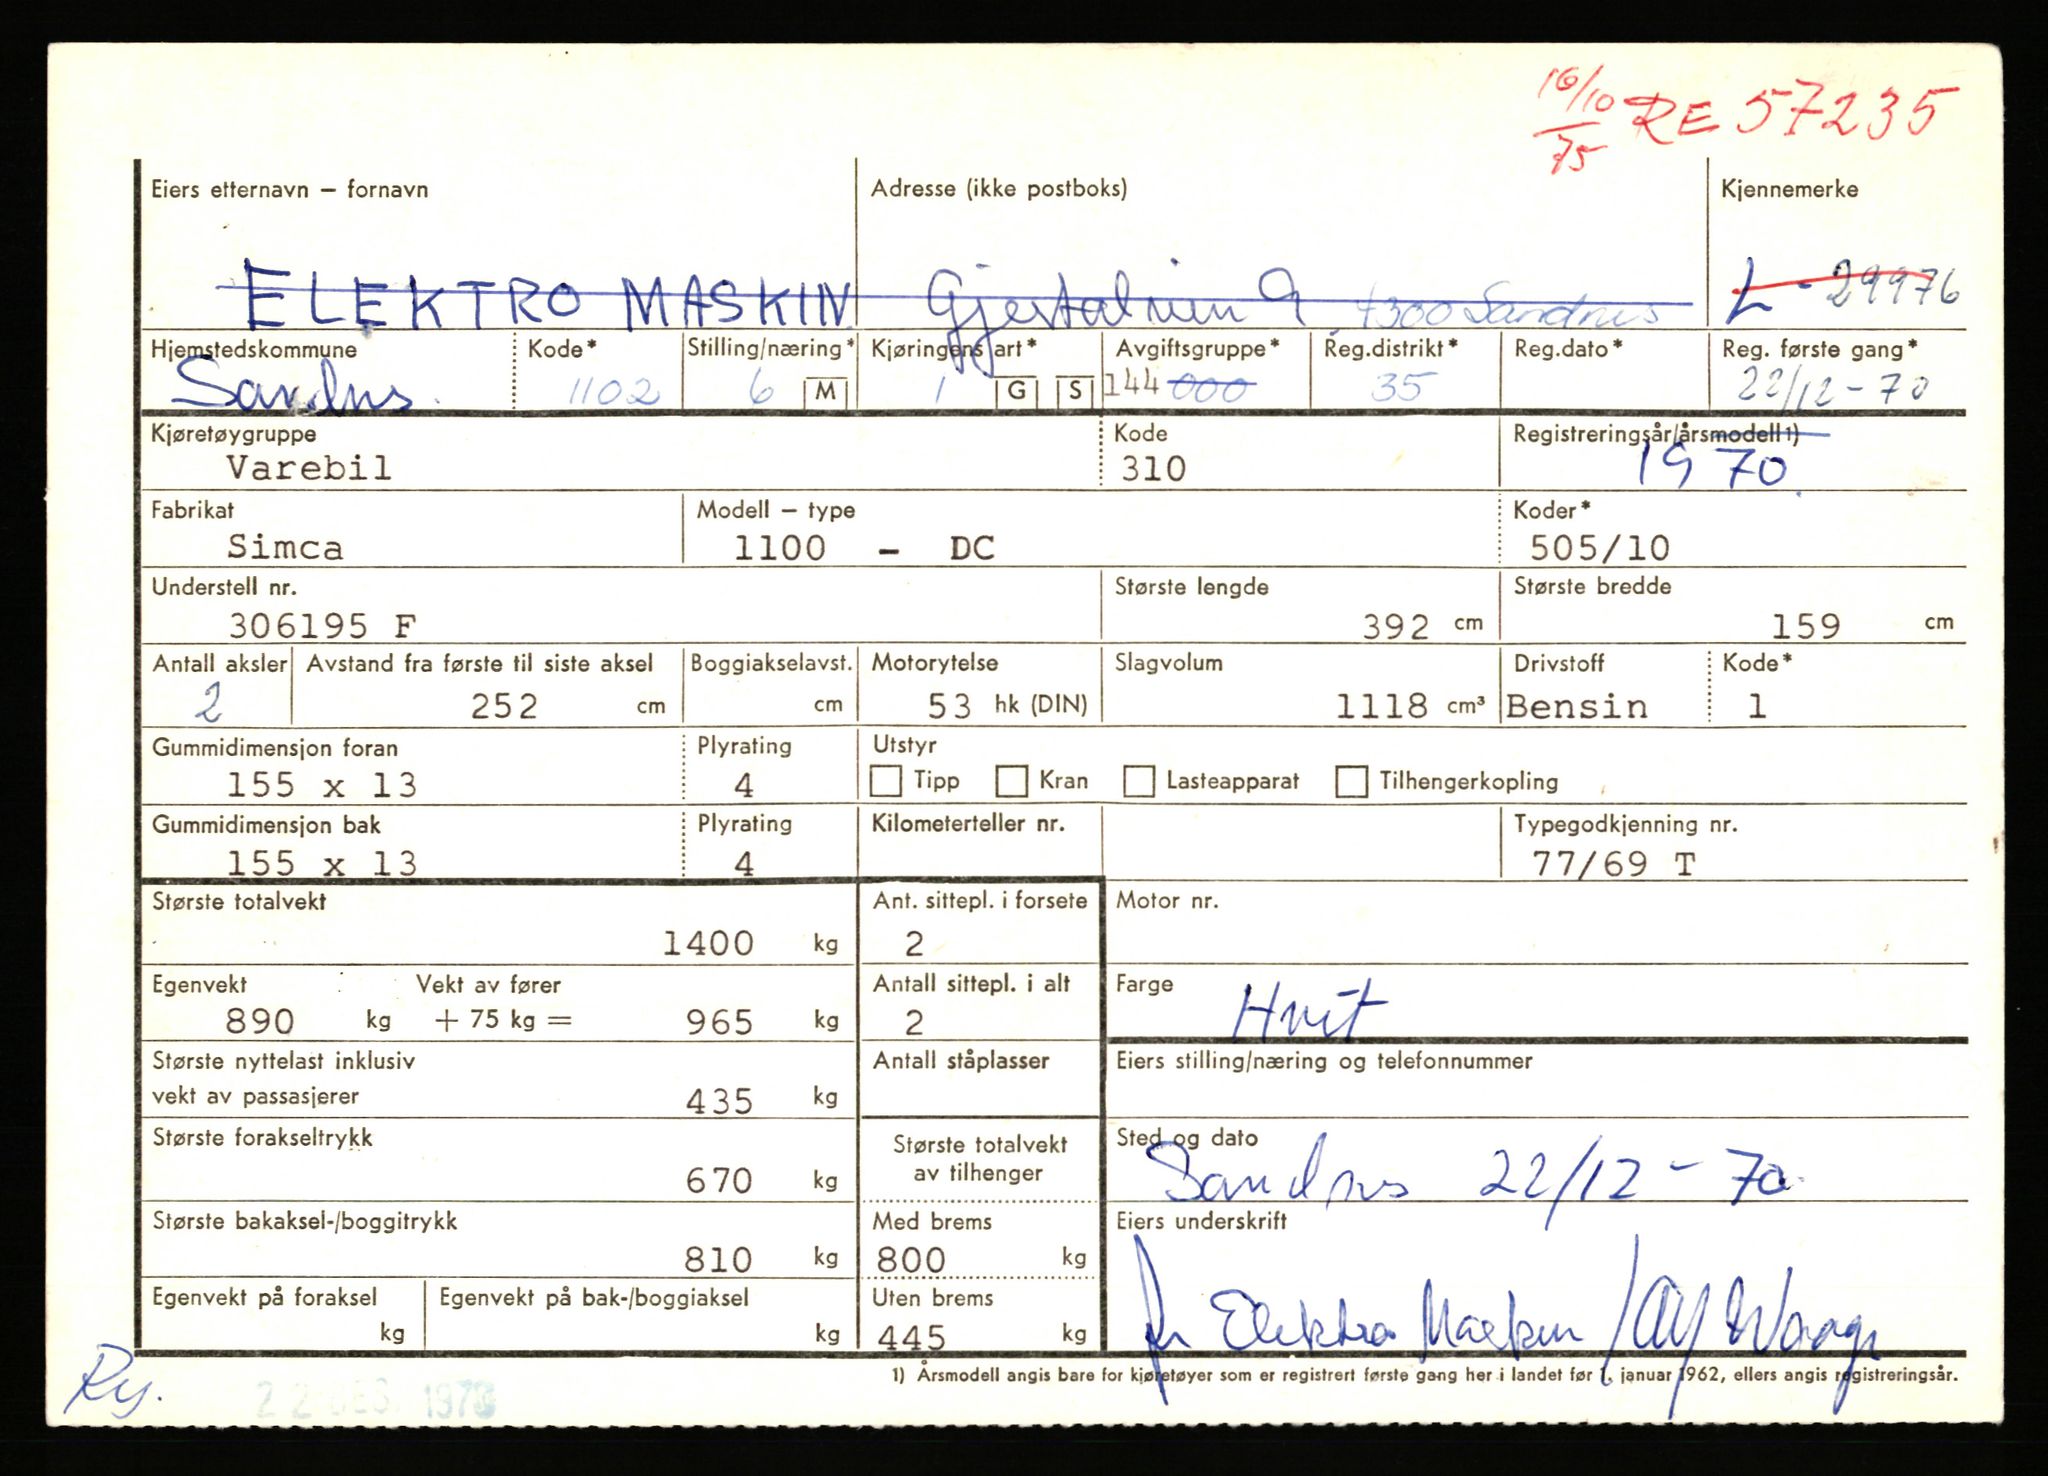 16/10 75 RE 57235
Eiers etternavn – fornavn Adresse (ikke postboks) Kjennemerke
ELEKTRO MASKIN Gjestalveien 9 4300 Sandnes L - 29976
Hjemstedskommune Kode* Stilling/næring* Kjøringens art* Avgiftsgruppe* Reg.distrikt* Reg.dato* Reg. første gang*
Sandnes 1102 6 M 1 G S 144 000 35 22/12-70
Kjøretøygruppe Kode Registreringsår/årsmodell 1)
Varebil 310 1970
Fabrikat Modell – type Koder*
Simca 1100 - DC 505/10
Understell nr. Største lengde Største bredde
306195 F 392 cm 159 cm
Antall aksler Avstand fra første til siste aksel Boggiakselavst. Motorytelse Slagvolum Drivstoff Kode*
2 252 cm cm 53 hk (DIN) 1118 cm³ Bensin 1
Gummidimensjon foran Plyrating Utstyr
155 x 13 4 Tipp Kran Lasteapparat Tilhengerkopling
Gummidimensjon bak Plyrating Kilometerteller nr. Typegodkjenning nr.
155 x 13 4 77/69 T
Største totalvekt Ant. sittepl. i forsete Motor nr.
1400 kg 2
Egenvekt Vekt av fører Antall sittepl. i alt Farge
890 kg + 75 kg = 965 kg 2 Hvit
Største nyttelast inklusiv Antall ståplasser Eiers stilling/næring og telefonnummer
vekt av passasjerer 435 kg
Største forakseltrykk Største totalvekt Sted og dato
av tilhenger
670 kg Sandnes 22/12-70
Største bakaksel-/boggitrykk Med brems Eiers underskrift
810 kg 800 kg
Egenvekt på foraksel Egenvekt på bak-/boggiaksel Uten brems
kg kg 445 kg Elektro Maskin
1) Årsmodell angis bare for kjøretøyer som er registrert første gang her i landet før 1. januar 1962, ellers angis registreringsår.
22 DES. 1970